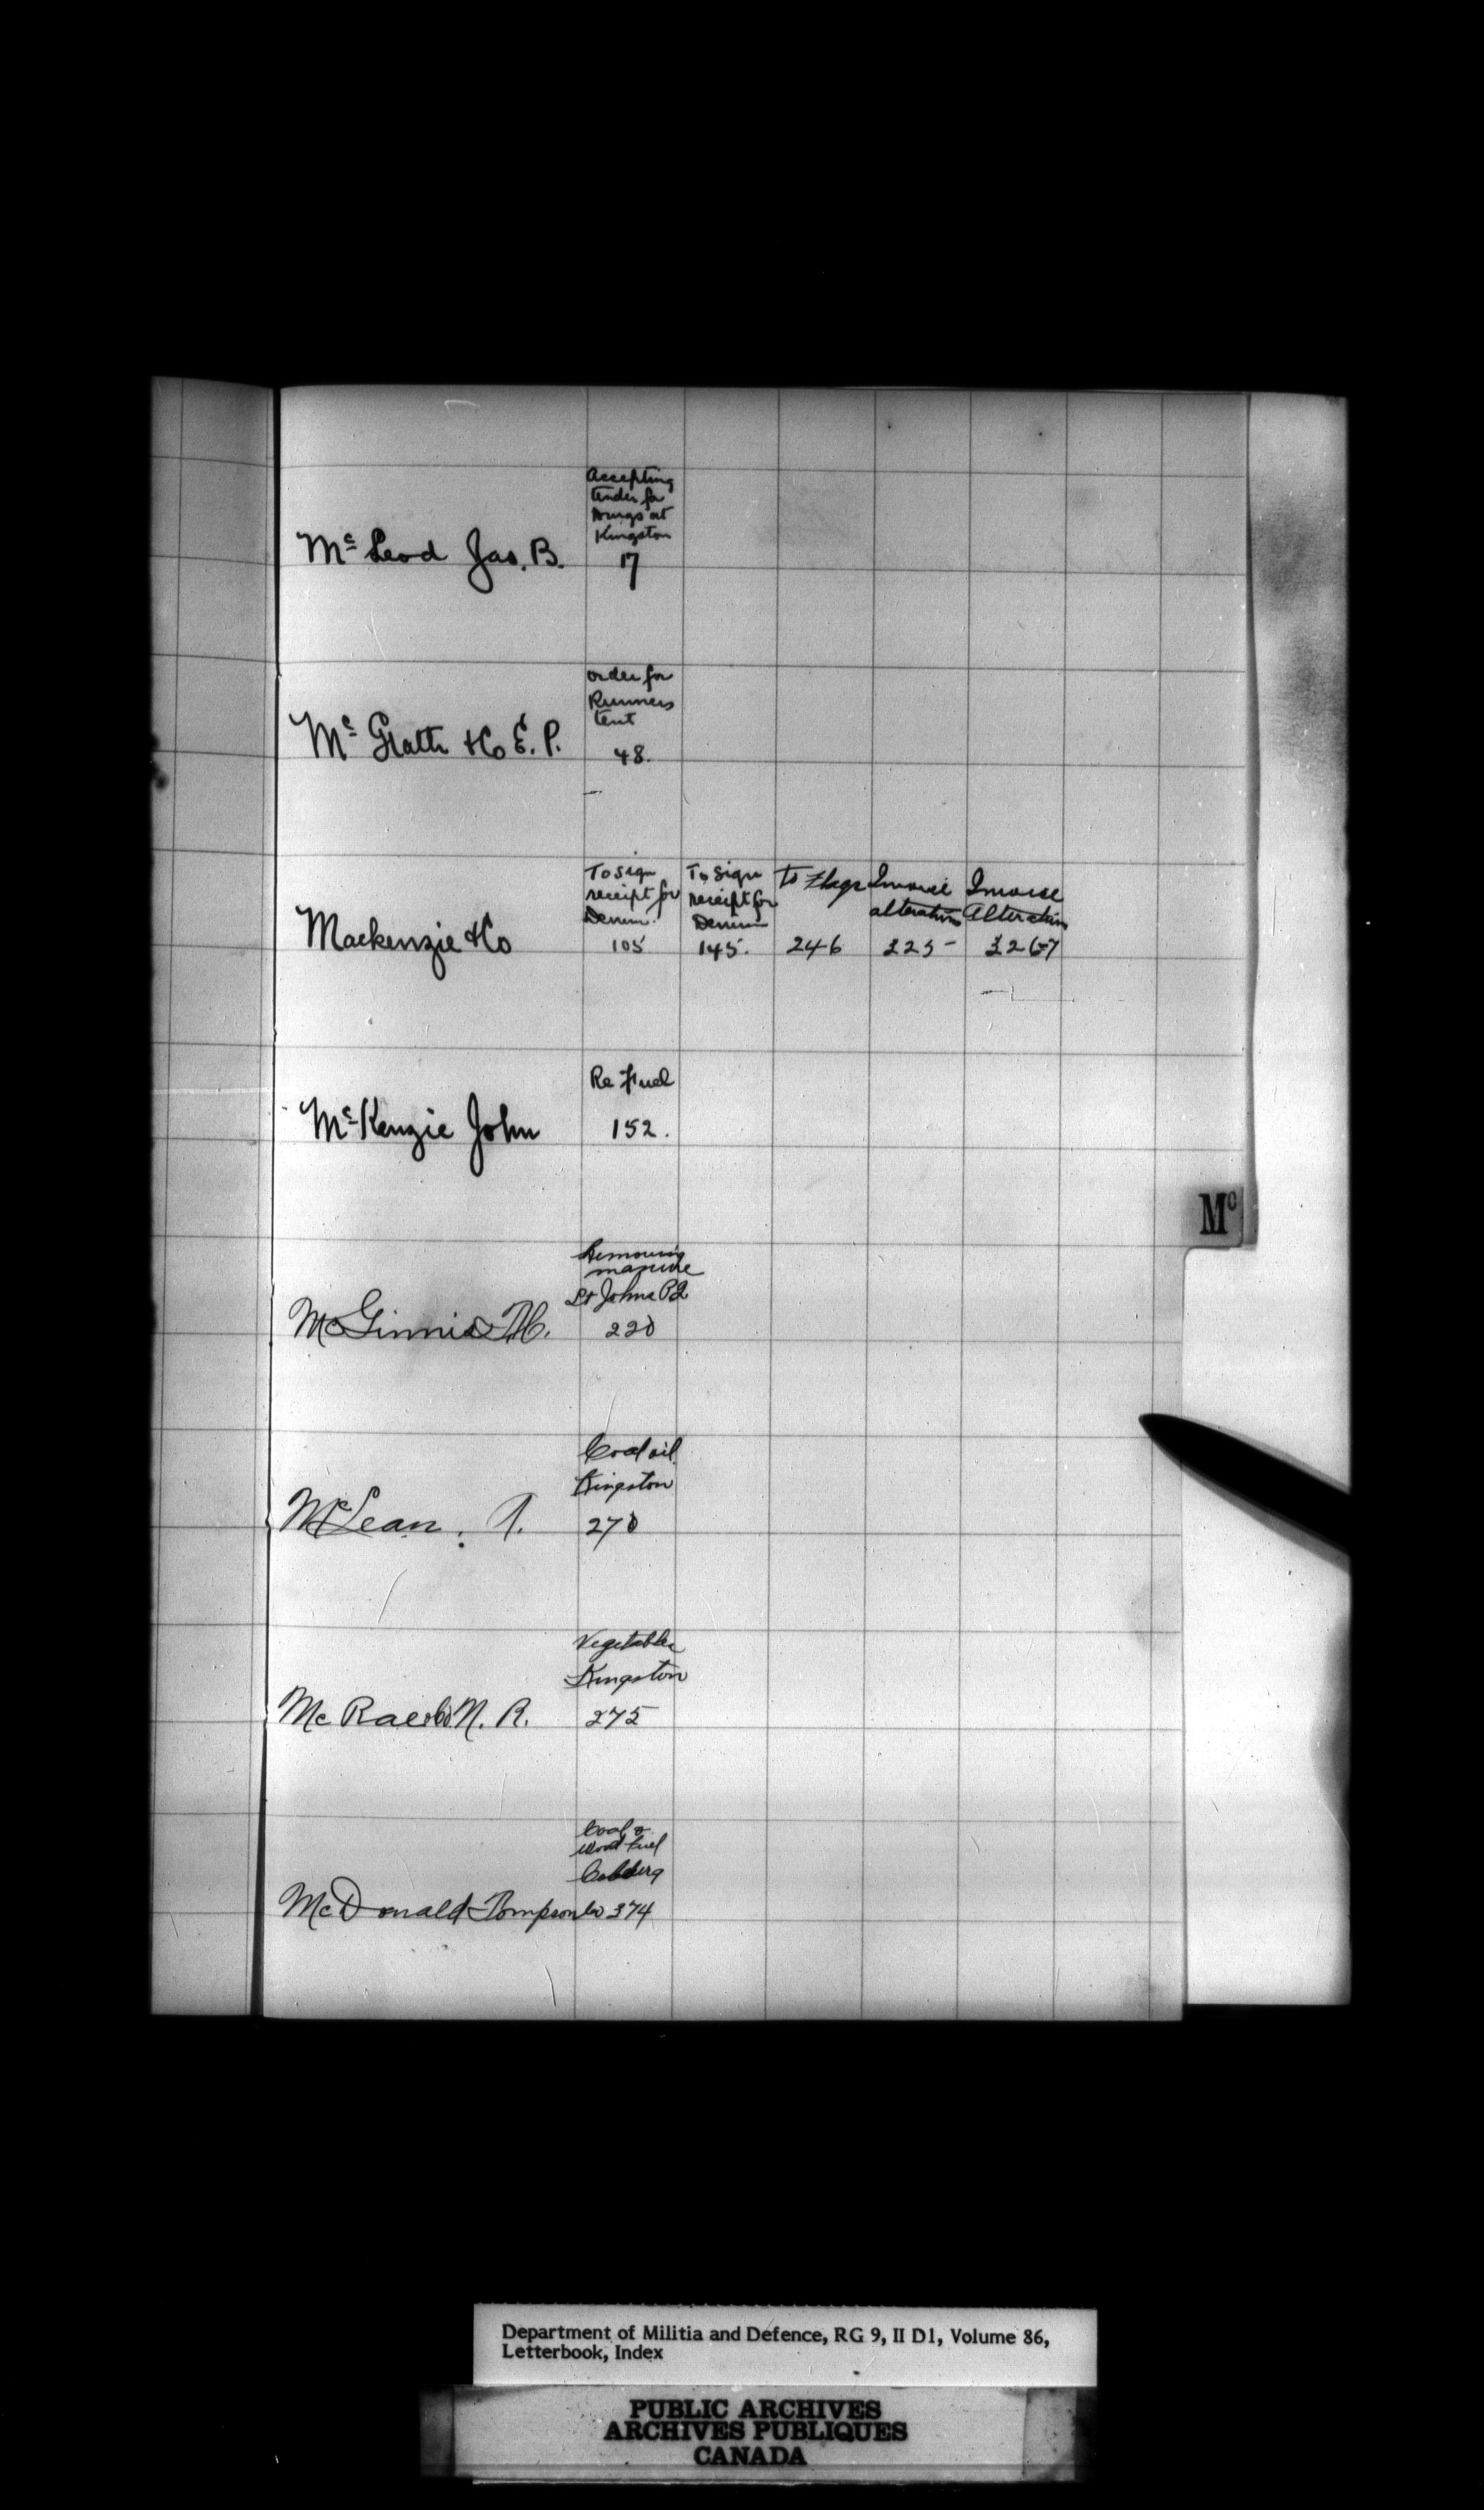 Accepting
tender for
Drugs at
Kingston
Mc Leod Jas. B. 17
order for
Runners
tent
Mc Grath & Co E. P. 48.
To sign receipt for Denim To sign receipt for Denim To Flags Invoice alteration Invoice Alteration
Mackenzie & Co 105 145. 246 225 267
Re Fuel
Mc Kenzie John 152.
Removing
manure
St Johns PQ
McGinnis 220
Coal oil
Kingston
McLean. 270
Vegetables
Kingston
Mc Rae & Co. N. R. 275
Coal &
Wood fuel
Cobourg
McDonald Tompson Co 374
Mc
Department of Militia and Defence, RG 9, II D1, Volume 86,
Letterbook, Index
PUBLIC ARCHIVES
ARCHIVES PUBLIQUES
CANADA